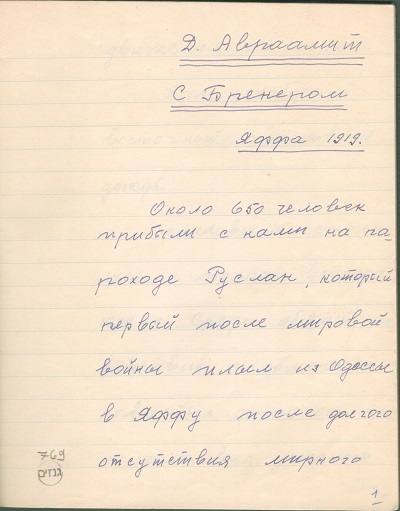 Д. Авраамит
С Бренером
Яффа 1919.
Около 650 человек
прибыли с нами на па-
роходе Руслан, который
первый после мировой
войны плыл из Одессы
в Яффу после долгого
отсутствия мирного
769
גנזים
1